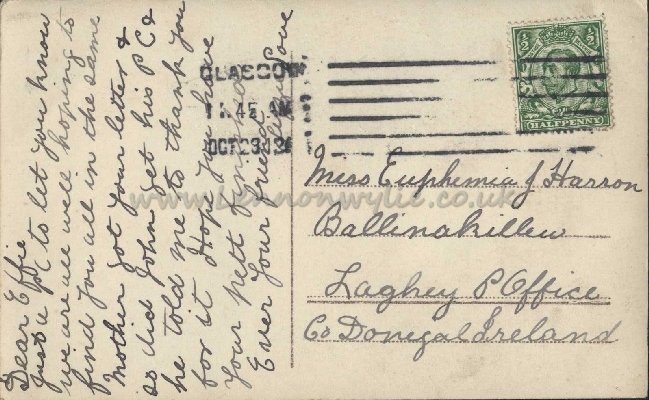 Dear Effie
Just a PC to let you know
we are all well hoping to
find you all in the same
Mother got your letter &
so did John get his PC &
he told me to thank you
for it Hope you have
your pett
Ever Your friend
Love
GLASGOW
11.45 AM
OCT 23
HALFPENNY
1/2
1/2
Miss Euphemia J Harron
Ballinakillew
Laghey P Office
Co Donegal Ireland
www.Lennonwylie.co.uk